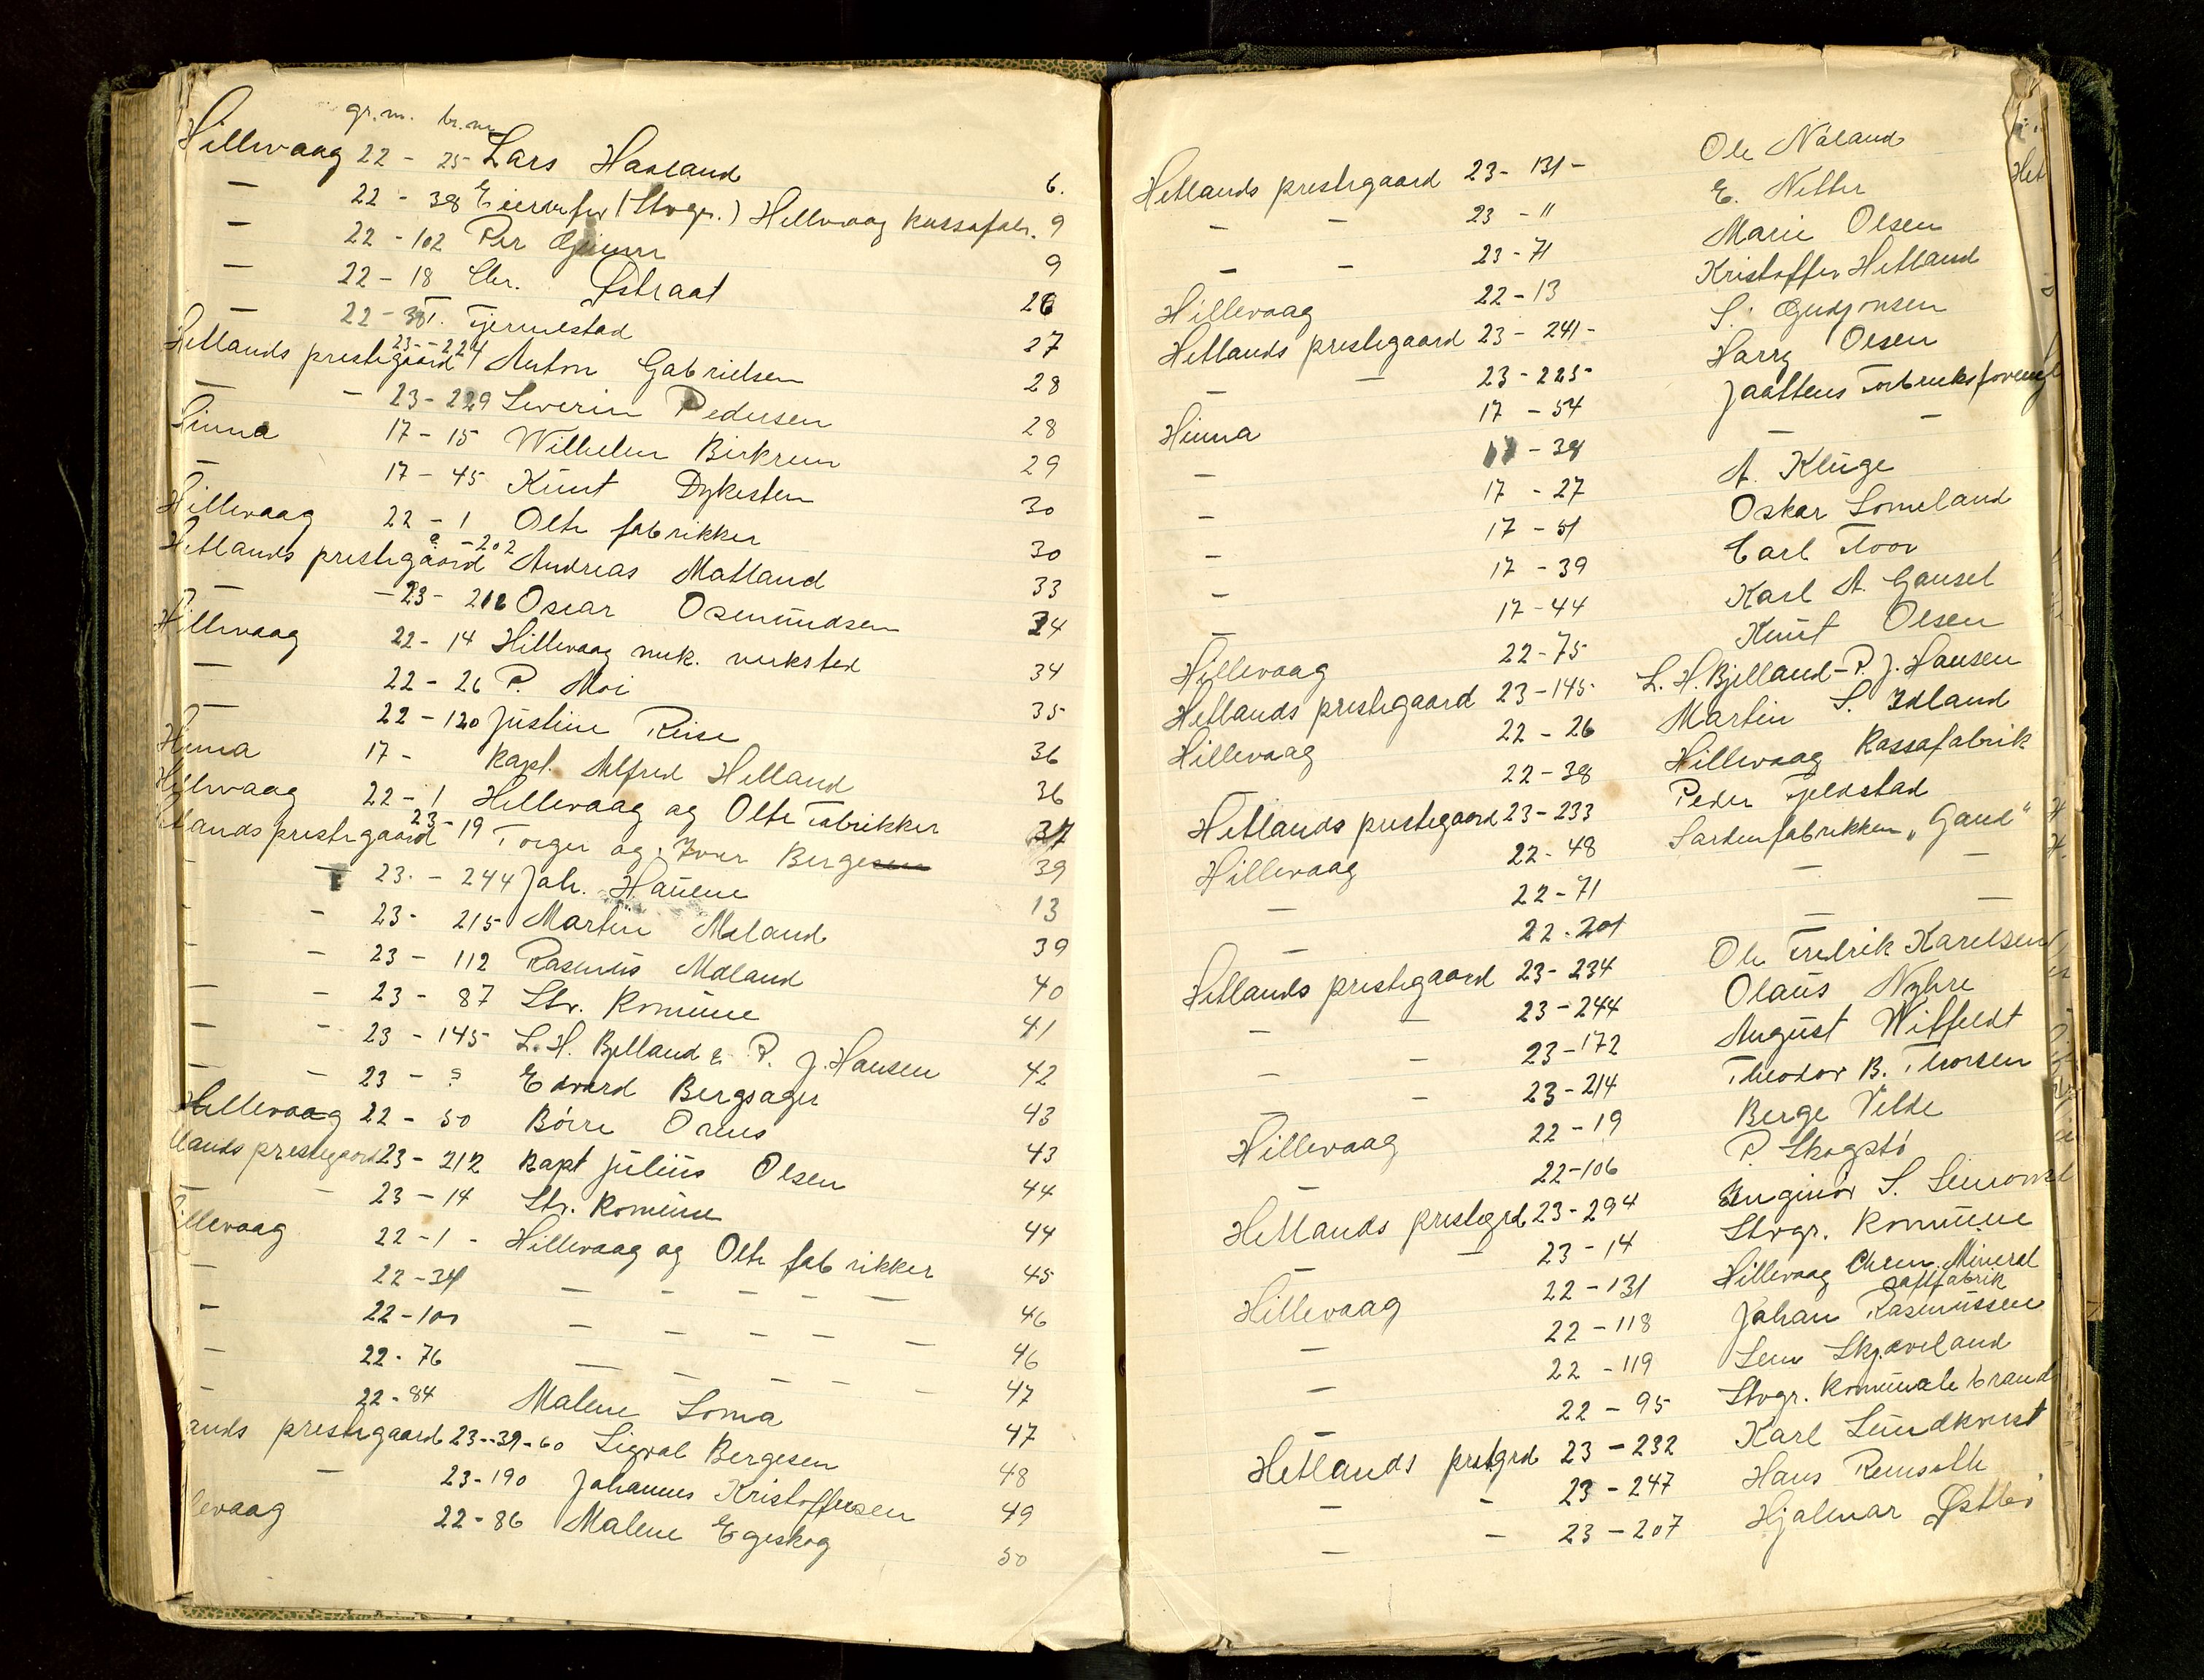 gr.nr. br.nr.
Hillevaag 22 - 25 Lars Haaland 6.
— 22 - 38 Eieren for (Stvgr.) Hillevaag kassafabr. 9
— 22 - 102 Per 9
— 22 - 18 Chr. Østraat 26
— 22 - 38 T. Tjemestad 27
Hetlands prestegaard 23 - 224 Anton Gabrielsen 28
— — 23 - 229 Severin Pedersen 28
Hinna 17 - 15 Wilhelm Birkrem 29
— 17 - 45 Knut Dykesten 30
Hillevaag 22 - 1 Olte fabrikker 30
Hetlands prestegaard ? - 202 Andreas Matland 33
— — 23 - 212 Oscar Osmundsen 34
Hillevaag 22 - 14 Hillevaag mek. verksted 34
— 22 - 26 P. Moi 35
— 22 - 120 Justine Reise 36
Hinna 17 - Kapt. Alfred Helland 36
Hillevaag 22 - 1 Hillevaag og Olte Fabrikker 37
tlands prestegaard 23 - 19 Torger og Iver Bergesen 39
— 23. - 244 Joh. Hauene 13
- - 23 - 215 Martin Maland 39
- - 23 - 112 Rasmus Maland 40
— - 23 - 87 Stv. Komune 41
— - 23 - 145 L. H. Bjelland & P. J. Hansen 42
— - 23 - ? Edvard Bergsager 43
Hillevaag 22 - 50 Börre Orens 43
tlands prestegaard 23 - 212 Kapt Julius Olsen 44
— - 23 - 14 Stv. Komune 44
illevaag 22 - 1 - Hillevaag og Olte fabrikker 45
— 22 - 34 — — — — — 46
— 22 - 100 — — — — — 46
— 22 - 76 — — — — — 47
- 22 - 84 Malene Soma 47
lands prestegaard 23 - 39 - 60 Sigval Bergesen 48
— 23 - 190 Johannes Kristoffersen 49
levaag 22 - 86 Malene Egeskog 50
Hetlands prestegaard 23 - 131 - Ole Nåland
- - 23 - " E. Netter
— - 23 - 71 Marie Olsen
Hillevaag 22 - 13 Kristoffer Hetland
Hetlands prestegaard 23 - 241 - S. Gudjonsen
— — 23 - 225 - Harry Olsen
Hinna 17 - 54 Jaattens Torbruksforening
- 17 - 38 — —
- 17 - 27 A. Kluge
- 17 - 51 Oskar Someland
- 17 - 39 Carl Toov
— 17 - 44 Karl A. Gausel
Hillevaag 22 - 75 Knut Olsen
Hetlands prestegaard 23 - 145 L. H. Bjelland - P. J. Hansen
Hillevaag 22 - 26 Martin S. Idland
22 - 38 Hillevaag Kassafabrik
Hetlands prestegaard 23 - 233 Peder Fjeldstad
Hillevaag 22 - 48 Sardinfabrikken „Gand"
— 22 - 71 — —
— 22 - 201 — —
Hetlands prestegaard 23 - 234 Ole Fredrik Karelsen
— — 23 - 244 Olaus Nyhre
— — 23 - 172 August Wiffeldt
— — 23 - 214 Theodor B. Thorsen
Hillevaag 22 - 19 Berge Velde
— 22 - 106 P. Skogstö
Hetlands prestegrd 23 - 294 Ingeniör S. Simons
— — 23 - 14 Stvgr. Komune
Hillevaag 22 - 131 Hillevaag Chem. Mineral
saftfabrik
— 22 - 118 Johan Rasmussen
— 22 - 119 Sem Skjæveland
22 - 95 Stvgr. Komunale brand
Hetlands prstgrd 23 - 232 Karl Sundkvist
— - 23 - 247 Hans Remseth
— - 23 - 207 Hjalmar Østbö